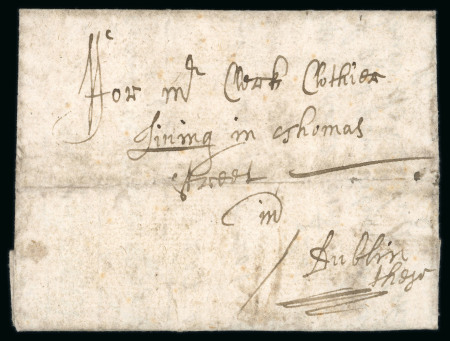 For mr Clerk Clothier
Living in Thomas
street
in
Dublin
these